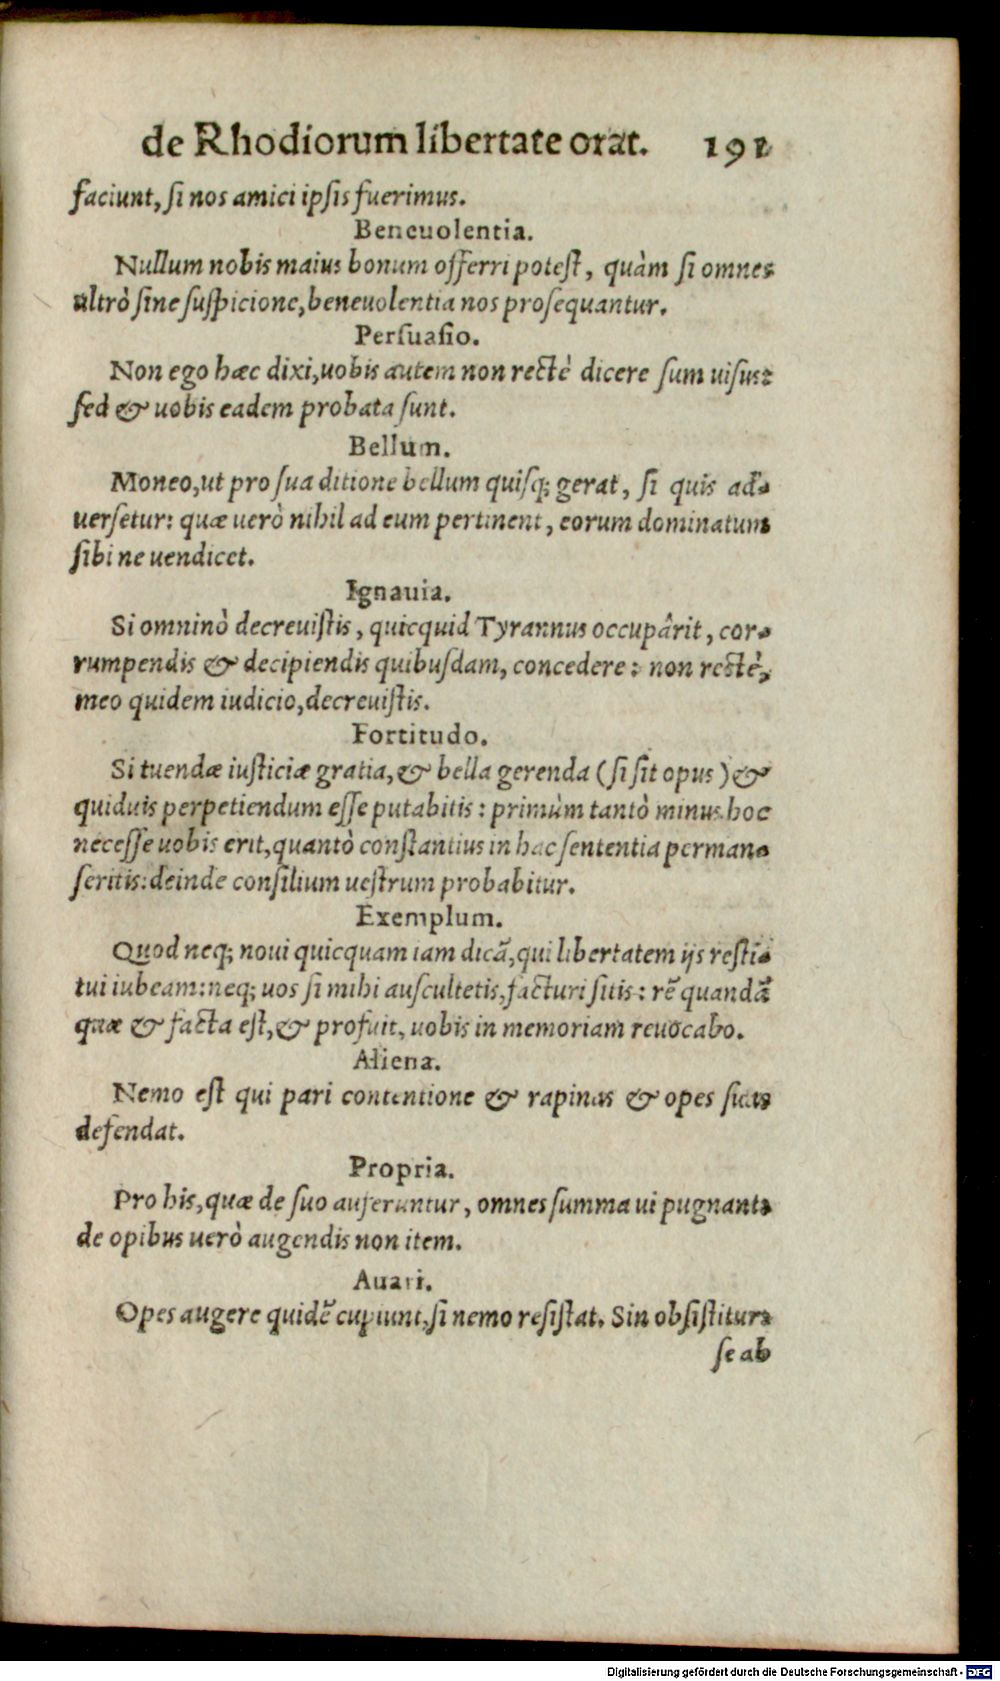 de Rhodiorum libertate orat. 191
faciunt, ſi nos amici ipſis fuerimus.
Beneuolentia.
Nullum nobis maius bonum offerri poteſt, quàm ſi omnes
ultrò ſine ſuſpicione, beneuolentia nos proſequantur.
Perſuaſio.
Non ego hæc dixi, uobis autem non rectè dicere ſum uiſus:
ſed & uobis eadem probata ſunt.
Bellum.
Moneo, ut pro ſua ditione bellum quiſq; gerat, ſi quis ad-
uerſetur: quæ uerò nihil ad eum pertinent, eorum dominatum
ſibi ne uendicet.
Ignauia.
Si omninò decreuiſtis, quicquid Tyrannus occupârit, cor-
rumpendis & decipiendis quibuſdam, concedere: non rectè,
meo quidem iudicio, decreuiſtis.
Fortitudo.
Si tuendæ iuſticiæ gratia, & bella gerenda (ſi ſit opus) &
quiduis perpetiendum eſſe putabitis: primùm tantò minus hoc
neceſſe uobis erit, quantò conſtantius in hac ſententia perman-
ſeritis: deinde conſilium ueſtrum probabitur.
Exemplum.
Quod neq; noui quicquam iam dicã, qui libertatem ijs reſti-
tui iubeam: neq; uos ſi mihi auſcultetis, facturi ſitis: rẽ quandã
quæ & facta eſt, & profuit, uobis in memoriam reuocabo.
Aliena.
Nemo eſt qui pari contentione & rapinas & opes ſuas
defendat.
Propria.
Pro his, quæ de ſuo auferuntur, omnes ſumma ui pugnant:
de opibus uerò augendis non item.
Auari.
Opes augere quidẽ cupiunt, ſi nemo reſiſtat. Sin obſiſtitur:
ſe ab
Digitalisierung gefördert durch die Deutsche Forschungsgemeinschaft - DFG